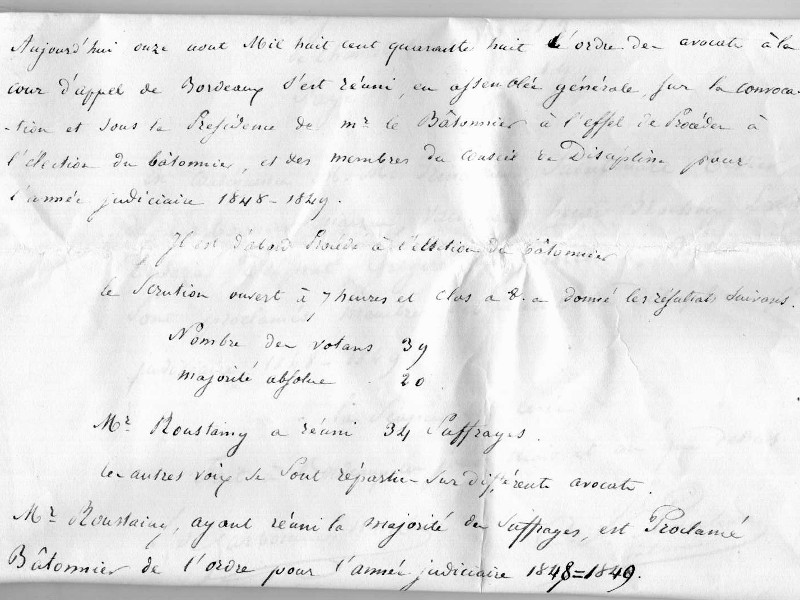 Aujourd'hui onze aout Mil huit cent quarante huit l'ordre des avocats à la
cour d'appel de Bordeaux s'est réuni, en assemblée générale, sur la convoca-
-tion et sous la Présidence de mr le Bâtonnier à l'effet de Procéder à
l'élection du bâtonnier, et des membres du conseil de Discipline pour
l'année judiciaire 1848-1849.
Il est d'abord Procédé à l'élection du bâtonnier
le Scrution ouvert à 7 heures et clos a 8. a donné les résultats suivans.
Nombre des votans 39
majorité absolue . 20
Mr Roustaing a réuni 34 Suffrages.
les autres voix se Sont réparties Sur différents avocats.
Mr Roustaing, ayant réuni la majorité des Suffrages, est Proclamé
Bâtonnier de l'ordre pour l'année judiciaire 1848=1849.